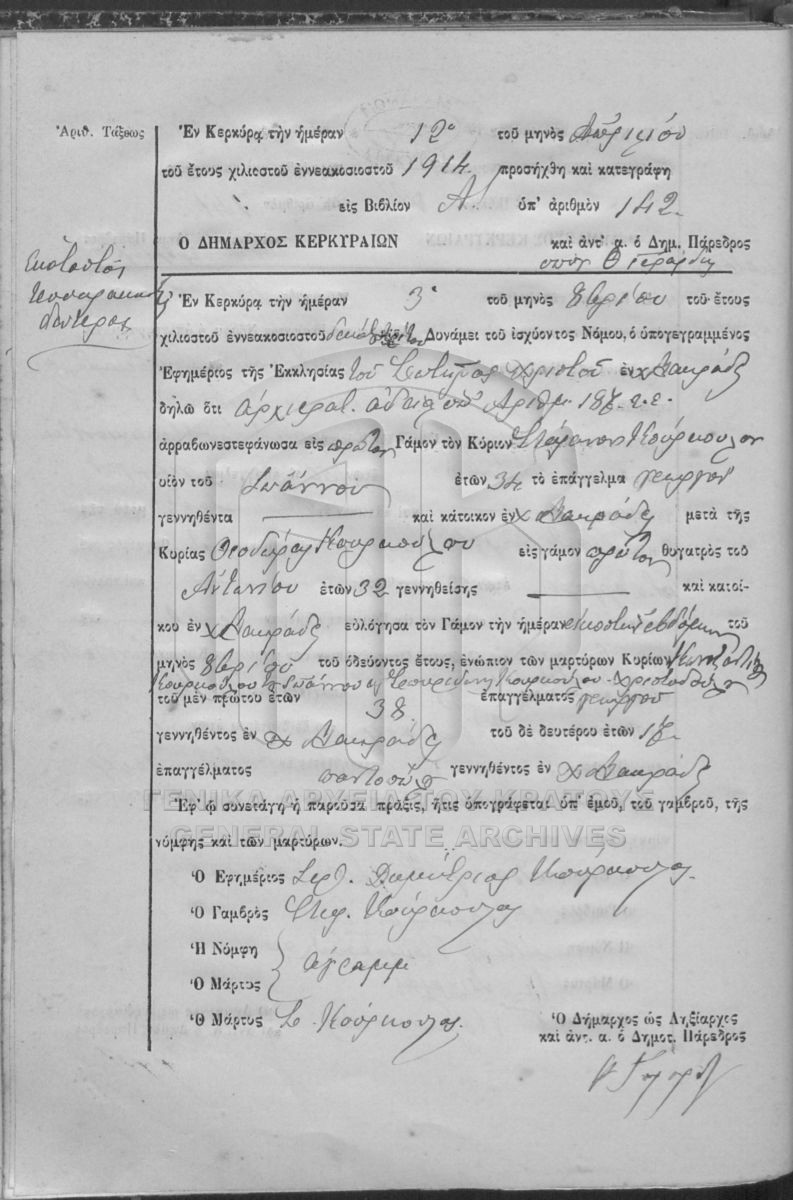 Ἀριθ. Τάξεως
Ἑκατοστός
τεσσαρακοστός
δεύτερος
Ἐν Κερκύρᾳ τὴν ἡμέραν 12ᵃ τοῦ μηνὸς Ἀπριλίου
τοῦ ἔτους χιλιοστοῦ ἐννεακοσιοστοῦ 1914 προσήχθη καὶ κατεγράφη
εἰς Βιβλίον Α. ὑπ' ἀριθμὸν 142.
Ο ΔΗΜΑΡΧΟΣ ΚΕΡΚΥΡΑΙΩΝ καὶ ἀντ' α. ὁ Δημ. Πάρεδρος
Ἐν Κερκύρᾳ τὴν ἡμέραν 3ᵃ τοῦ μηνὸς 8βρίου τοῦ ἔτους
χιλιοστοῦ ἐννεακοσιοστοῦ δεκάτου τρίτου Δυνάμει τοῦ ἰσχύοντος Νόμου, ὁ ὑπογεγραμμένος
Ἐφημέριος τῆς Ἐκκλησίας τοῦ Σωτῆρος Χριστοῦ ἐν χ Βατράδες
δηλῶ ὅτι ἀρχιερατ. ἀδείᾳ ὑπ' Ἀριθμ.
ἀρραβωνεστεφάνωσα εἰς πρῶτον Γάμον τὸν Κύριον Στέφανον Κούρκουλον
υἱὸν τοῦ Ἰωάννου ἐτῶν 34 τὸ ἐπάγγελμα γεωργὸν
γεννηθέντα καὶ κάτοικον ἐν χ μετὰ τῆς
Κυρίας Θεοδώρας Κουρκούλου εἰς γάμον πρῶτον θυγατρὸς τοῦ
Ἀντωνίου ἐτῶν 32 γεννηθείσης καὶ κατοί-
κου ἐν χ εὐλόγησα τὸν Γάμον τὴν ἡμέραν εἰκοστὴν ἑβδόμην τοῦ
μηνὸς 8βρίου τοῦ ὁδεύοντος ἔτους, ἐνώπιον τῶν μαρτύρων Κυρίων Κωνσταντίνου
Κουρκούλου Ἰωάννου Σπυρίδων Κουρκούλου Χριστοδούλου
τοῦ μὲν πρώτου ἐτῶν 38 ἐπαγγέλματος γεωργοῦ
γεννηθέντος ἐν χ τοῦ δὲ δευτέρου ἐτῶν
ἐπαγγέλματος παντοπώλου γεννηθέντος ἐν χ
Ἐφ' ᾧ συνετάγη ἡ παροῦσα πρᾶξις, ἥτις ὑπογράφεται ὑπ' ἐμοῦ, τοῦ γαμβροῦ, τῆς
νύμφης καὶ τῶν μαρτύρων.
ΓΕΝΙΚΑ ΑΡΧΕΙΑ ΤΟΥ ΚΡΑΤΟΥΣ
GENERAL STATE ARCHIVES
Ὁ Ἐφημέριος Ἱερ. Δημήτριος Κούρκουλος
Ὁ Γαμβρὸς Στέφ. Κούρκουλος
Ἡ Νύμφη
ἀγράμμ
Ὁ Μάρτυς
Ὁ Μάρτυς Σ. Κούρκουλος.
Ὁ Δήμαρχος ὡς Ληξίαρχος
καὶ ἀντ. α. ὁ Δημοτ. Πάρεδρος